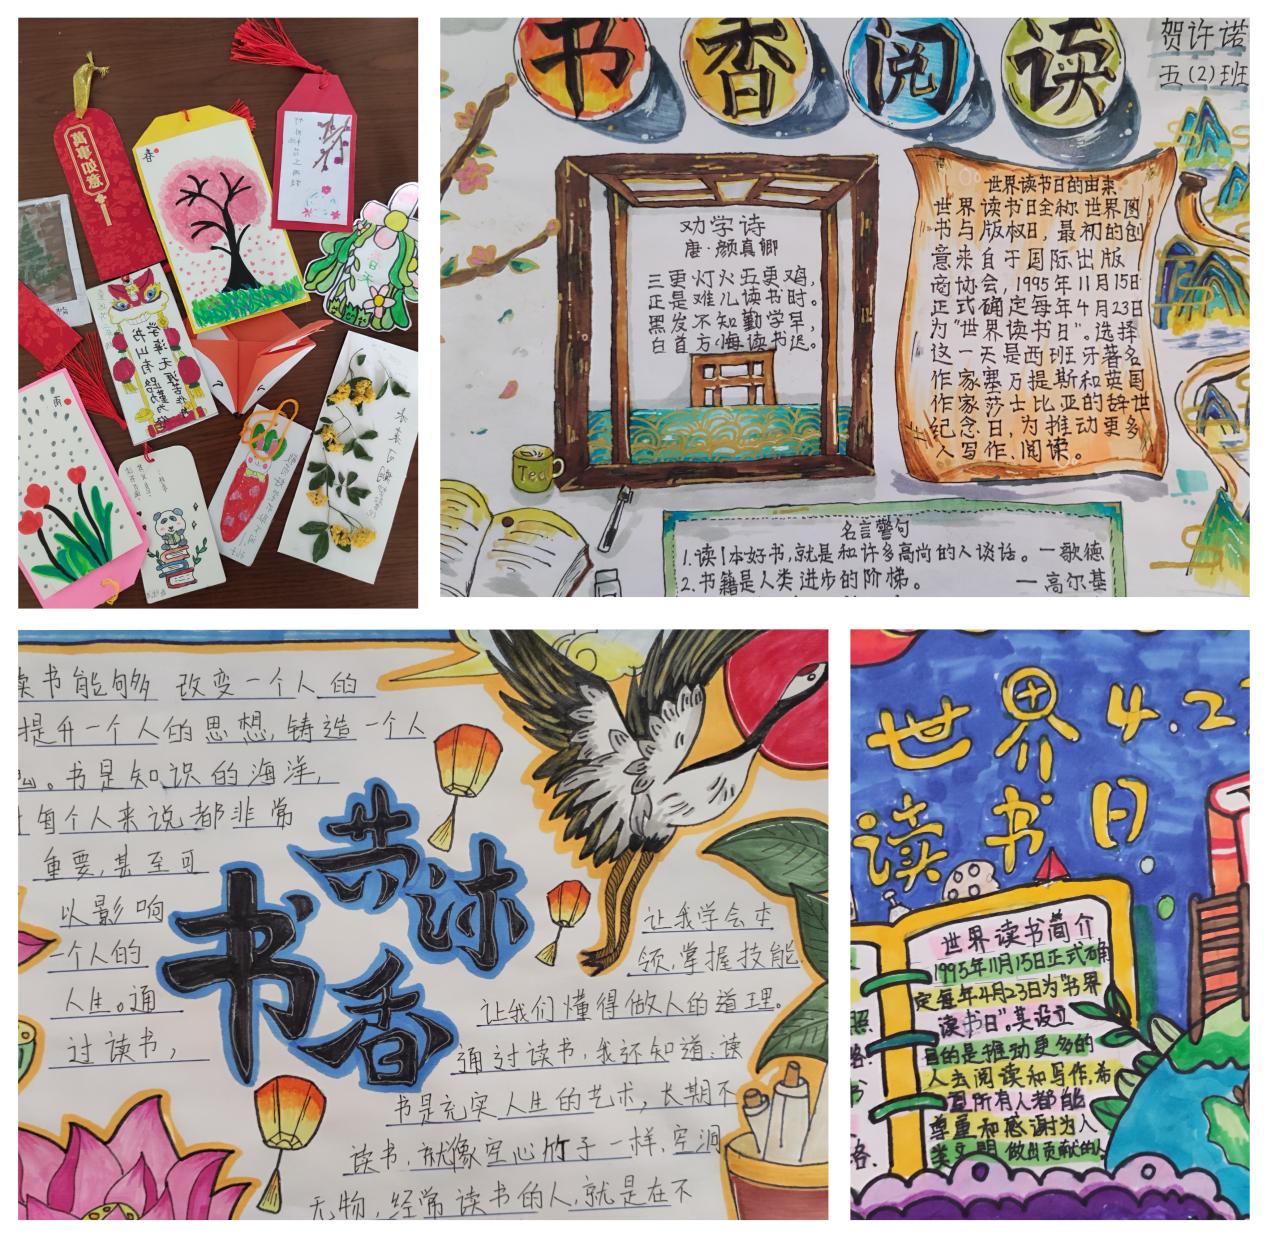 萬事如意
春
雨
学海无涯苦作舟
书山有路勤为径
书香阅读
贺许诺
五(2)班
劝学诗
唐·颜真卿
三更灯火五更鸡,
正是难儿读书时。
黑发不知勤学早,
白首方悔读书迟。
世界读书日的由来
世界读书日全称世界图
书与版权日,最初的创
意来自于国际出版
商协会,1995年11月15日
正式确定每年4月23日
为"世界读书日"。选择
这一天是西班牙著名
作家塞万提斯和英国
作家莎士比亚的辞世
纪念日,为推动更多
人写作、阅读。
Tea
名言警句
1.读1本好书,就是和许多高尚的人谈话。一歌德
2.书籍是人类进步的阶梯。 一高尔基
读书能够 改变一个人的
提升一个人的思想,铸造一个人
。书是知识的海洋,
每个人来说都非常
重要,甚至可
以影响
一个人的
人生。通
过读书,
书香
让我学会本
领,掌握技能
让我们懂得做人的道理。
通过读书,我还知道:读
书是充实人生的艺术,长期不
读书,就像空心竹子一样,空洞
无物,经常读书的人,就是在不
世界 4.2
读书日
世界读书简介
1995年11月15日正式确
定每年4月23日为"书界
读书日"。其设立
目的是推动更多的
人去阅读和写作,希
望所有人都能
尊重和感谢为人
类文明做出贡献的人